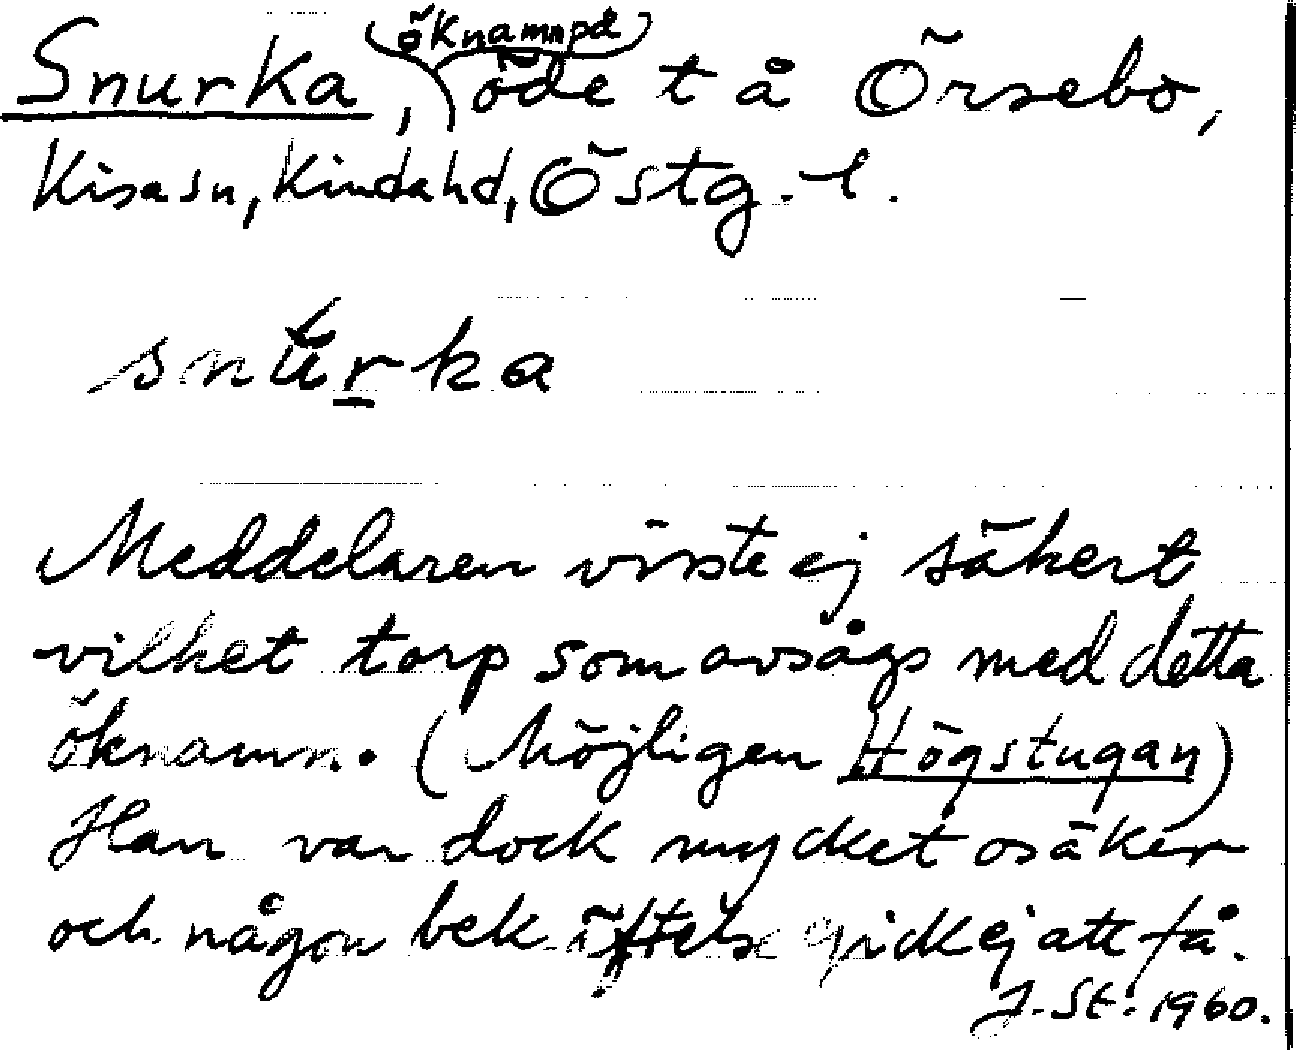 Snurka, (öknamn på) öde t å Örsebo,
Kisa sn, Kinda hd, Östg. l.
snúrka
Meddelaren visste ej säkert
vilket torp som avsågs med detta
öknamn. (Möjligen Högstugan)
Han var dock mycket osäker
och någon bekräftelse gick ej att få.
J. St. 1960.